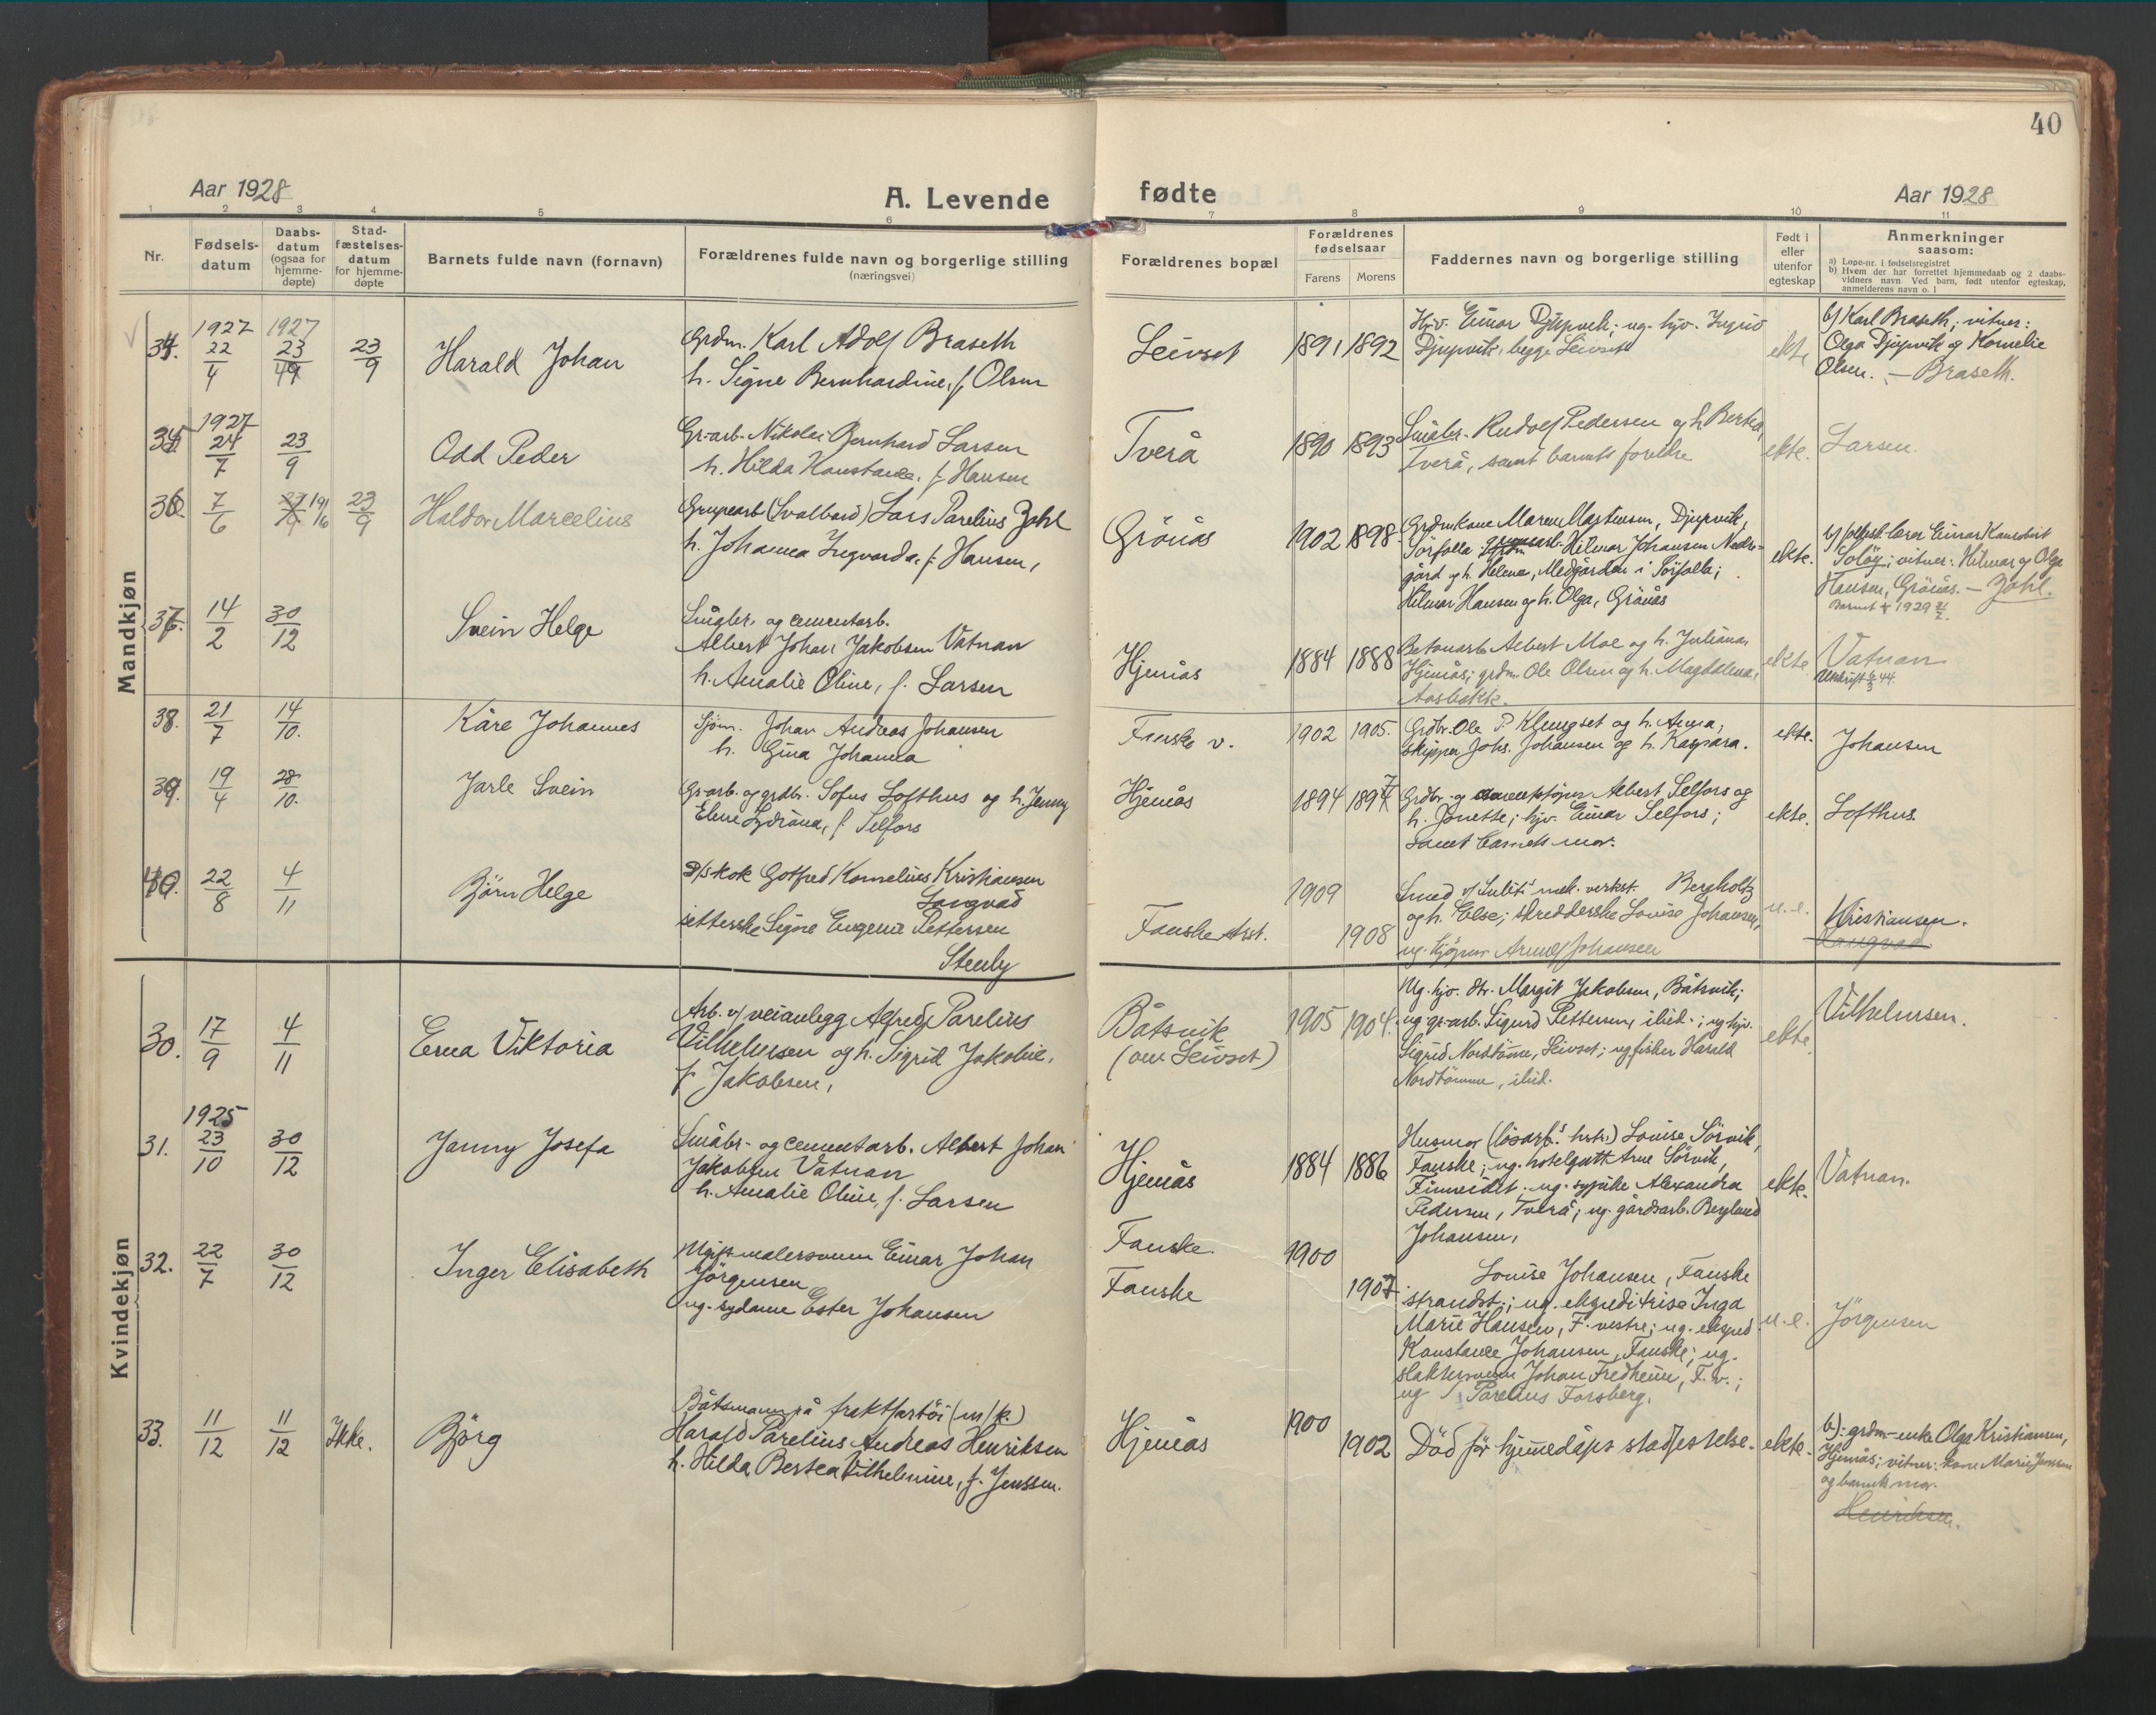 40
Aar 1928
A. Levende fødte
Aar 1928
1 2 3 4 5 6 7 8 9 10 11
Nr.
Fødsels-
datum
Daabs-
datum
(ogsaa for
hjemme-
døpte)
Stad-
fæstelses-
datum
for hjemme-
døpte
Barnets fulde navn (fornavn)
Forældrenes fulde navn og borgerlige stilling
(næringsvei)
Forældrenes bopæl
Forældrenes
fødselsaar
Farens Morens
Faddernes navn og borgerlige stilling
Født i
eller
utenfor
egteskap
Anmerkninger
saasom:
a) Løpe-nr. i fødselsregistret
b) Hvem der har forrettet hjemmedaab og 2 daabs-
vidners navn Ved barn, født utenfor egteskap,
anmelderens navn o. l
Mandkjøn
34. 1927 22/4 1927 23/4 23/9
Harald Johan
Grdm. Karl Adolf Braseth
h. Signe Bernhardine, f. Olsen
Leivset 1891 1892
Hjv. Einar Djupvik; ug. hjv. Ingrid
Djupvik, begge Leivset
ekte
b) Karl Braseth; vitner:
Olga Djupvik og Kornelie
Olsen. — Braseth.
35. 1927 24/7 23/9
Odd Peder
Gr.arb. Nikolai Bernhard Larsen
h. Hilda Konstanse, f. Hansen
Tverå 1890 1893
Småbr. Rudolf Pedersen og h. Bertea,
Tverå, samt barnets foreldre
ekte. Larsen.
36. 7/6 19/6 23/9
Haldor Marcelius
Gruvearb (Svalbard) Lars Parelius Zahl
h. Johanna Ingvarda, f. Hansen,
Grönås 1902 1898
Grdm.kone Maren Mortensen, Djupvik,
Sörfolla; Hilmar Johansen Nedre-
gård og h. Helene, Medgården i Sörfolla;
Hilmar Hansen og h. Olga, Grönås
ekte.
b) lærer Einar
Soløy; vitner: Hilmar og Olga
Hansen, Grönås. — Zahl.
37. 14/2 30/12
Svein Helge
Småbr. og cementarb.
Albert Johan Jakobsen Vatnan
h. Amalie Oline, f. Larsen
Hjemås 1884 1888
Betonarb Albert Moe og h. Juliana,
Hjemås; grdm. Ole Olsen og h. Magdalena,
ekte Vatnan
Utskrift 6/3 44.
38. 21/7 14/10.
Kåre Johannes
Sjöm. Johan Andreas Johansen
h. Gina Johanna
Fauske v. 1902 1905.
Grdbr. Ole P. Klungset og h. Anna;
skipper Johs. Johansen og h. Kaspara.
ekte. Johansen
39. 19/4 28/10.
Jarle Svein
Gr.arb. og grdbr. Sofus Lofthus og h. Jenny
Elene Lydiana, f. Selfors
Hjemås 1894 1897
Grdbr. og Albert Selfors og
h. Jonette; hjv. Einar Selfors;
samt barnets mor.
ekte. Lofthus.
40. 22/8 4/11
Björn Helge
D/S kok Gotfred Kornelius Kristiansen
Langvad
Signe Eugenie Pettersen
Stenby
Fauske st. 1909 1908
Smed v/ Sulit. mek. verkst. Bergholtz
og h. Else; skredderske Lovise Johansen,
ug. Johansen
u.e. Kristiansen.
Langvad
Kvindekjøn
30. 17/9 4/11
Erna Viktoria
Arb. v/ veianlegg Alfred Parelius
Vilhelmsen og h. Sigrid Jakobine,
f. Jakobsen,
Båtsvik
(ovr Leivset)
1905 1904.
Ug. hjv. dtr. Margit Jakobsen, Båtsvik;
ug gr.arb. Sigurd Pettersen, ibid.; ug hjv.
Sigrid Nordtömme, Leivset; ug fisker Harald
Nordtömme, ibid.
ekte Vilhelmsen.
31. 1925 23/10 30/12
Janny Josefa
Småbr- og cementarb. Albert Johan
Jakobsen Vatnan
h. Amalie Oline, f. Larsen
Hjemås 1884 1886
Husmor Lovise Sörvik,
Fauske; ug. hotelgutt Arne Sörvik,
Finneidet. ug. sypike Alexandra
Pedersen, Tverå; ug. gårdsarb. Berglund
Johansen,
ekte. Vatnan.
32. 22/7 30/12
Inger Elisabeth
Ugift malersvenn Einar Johan
Jörgensen
ug. sydame Ester Johansen
Fauske. 1900
Fauske 1907
Lovise Johansen, Fauske
strandst.; ug. ekspeditrise Inga
Marie Hansen, F. vestre; ug. eksped.
Konstance Johansen, Fauske; ug.
slaktersvenn Johan Fredheim, F.v.;
ug Parelius Forsberg.
u.e. Jörgensen
33. 11/12 11/12 Ikke.
Björg
Båtsmann på fraktfartöi (m/k.)
Harald Parelius Andreas Henriksen
h. Hilda Bertea Vilhelmine, f. Jenssen.
Hjemås 1900 1902
Död för hjemmedåps stadfestelse.
ekte.
b): grdm-enke Olga Kristiansen,
Hjemås; vitner: kone Marie Jenssen
og barnets mor.
Henriksen.